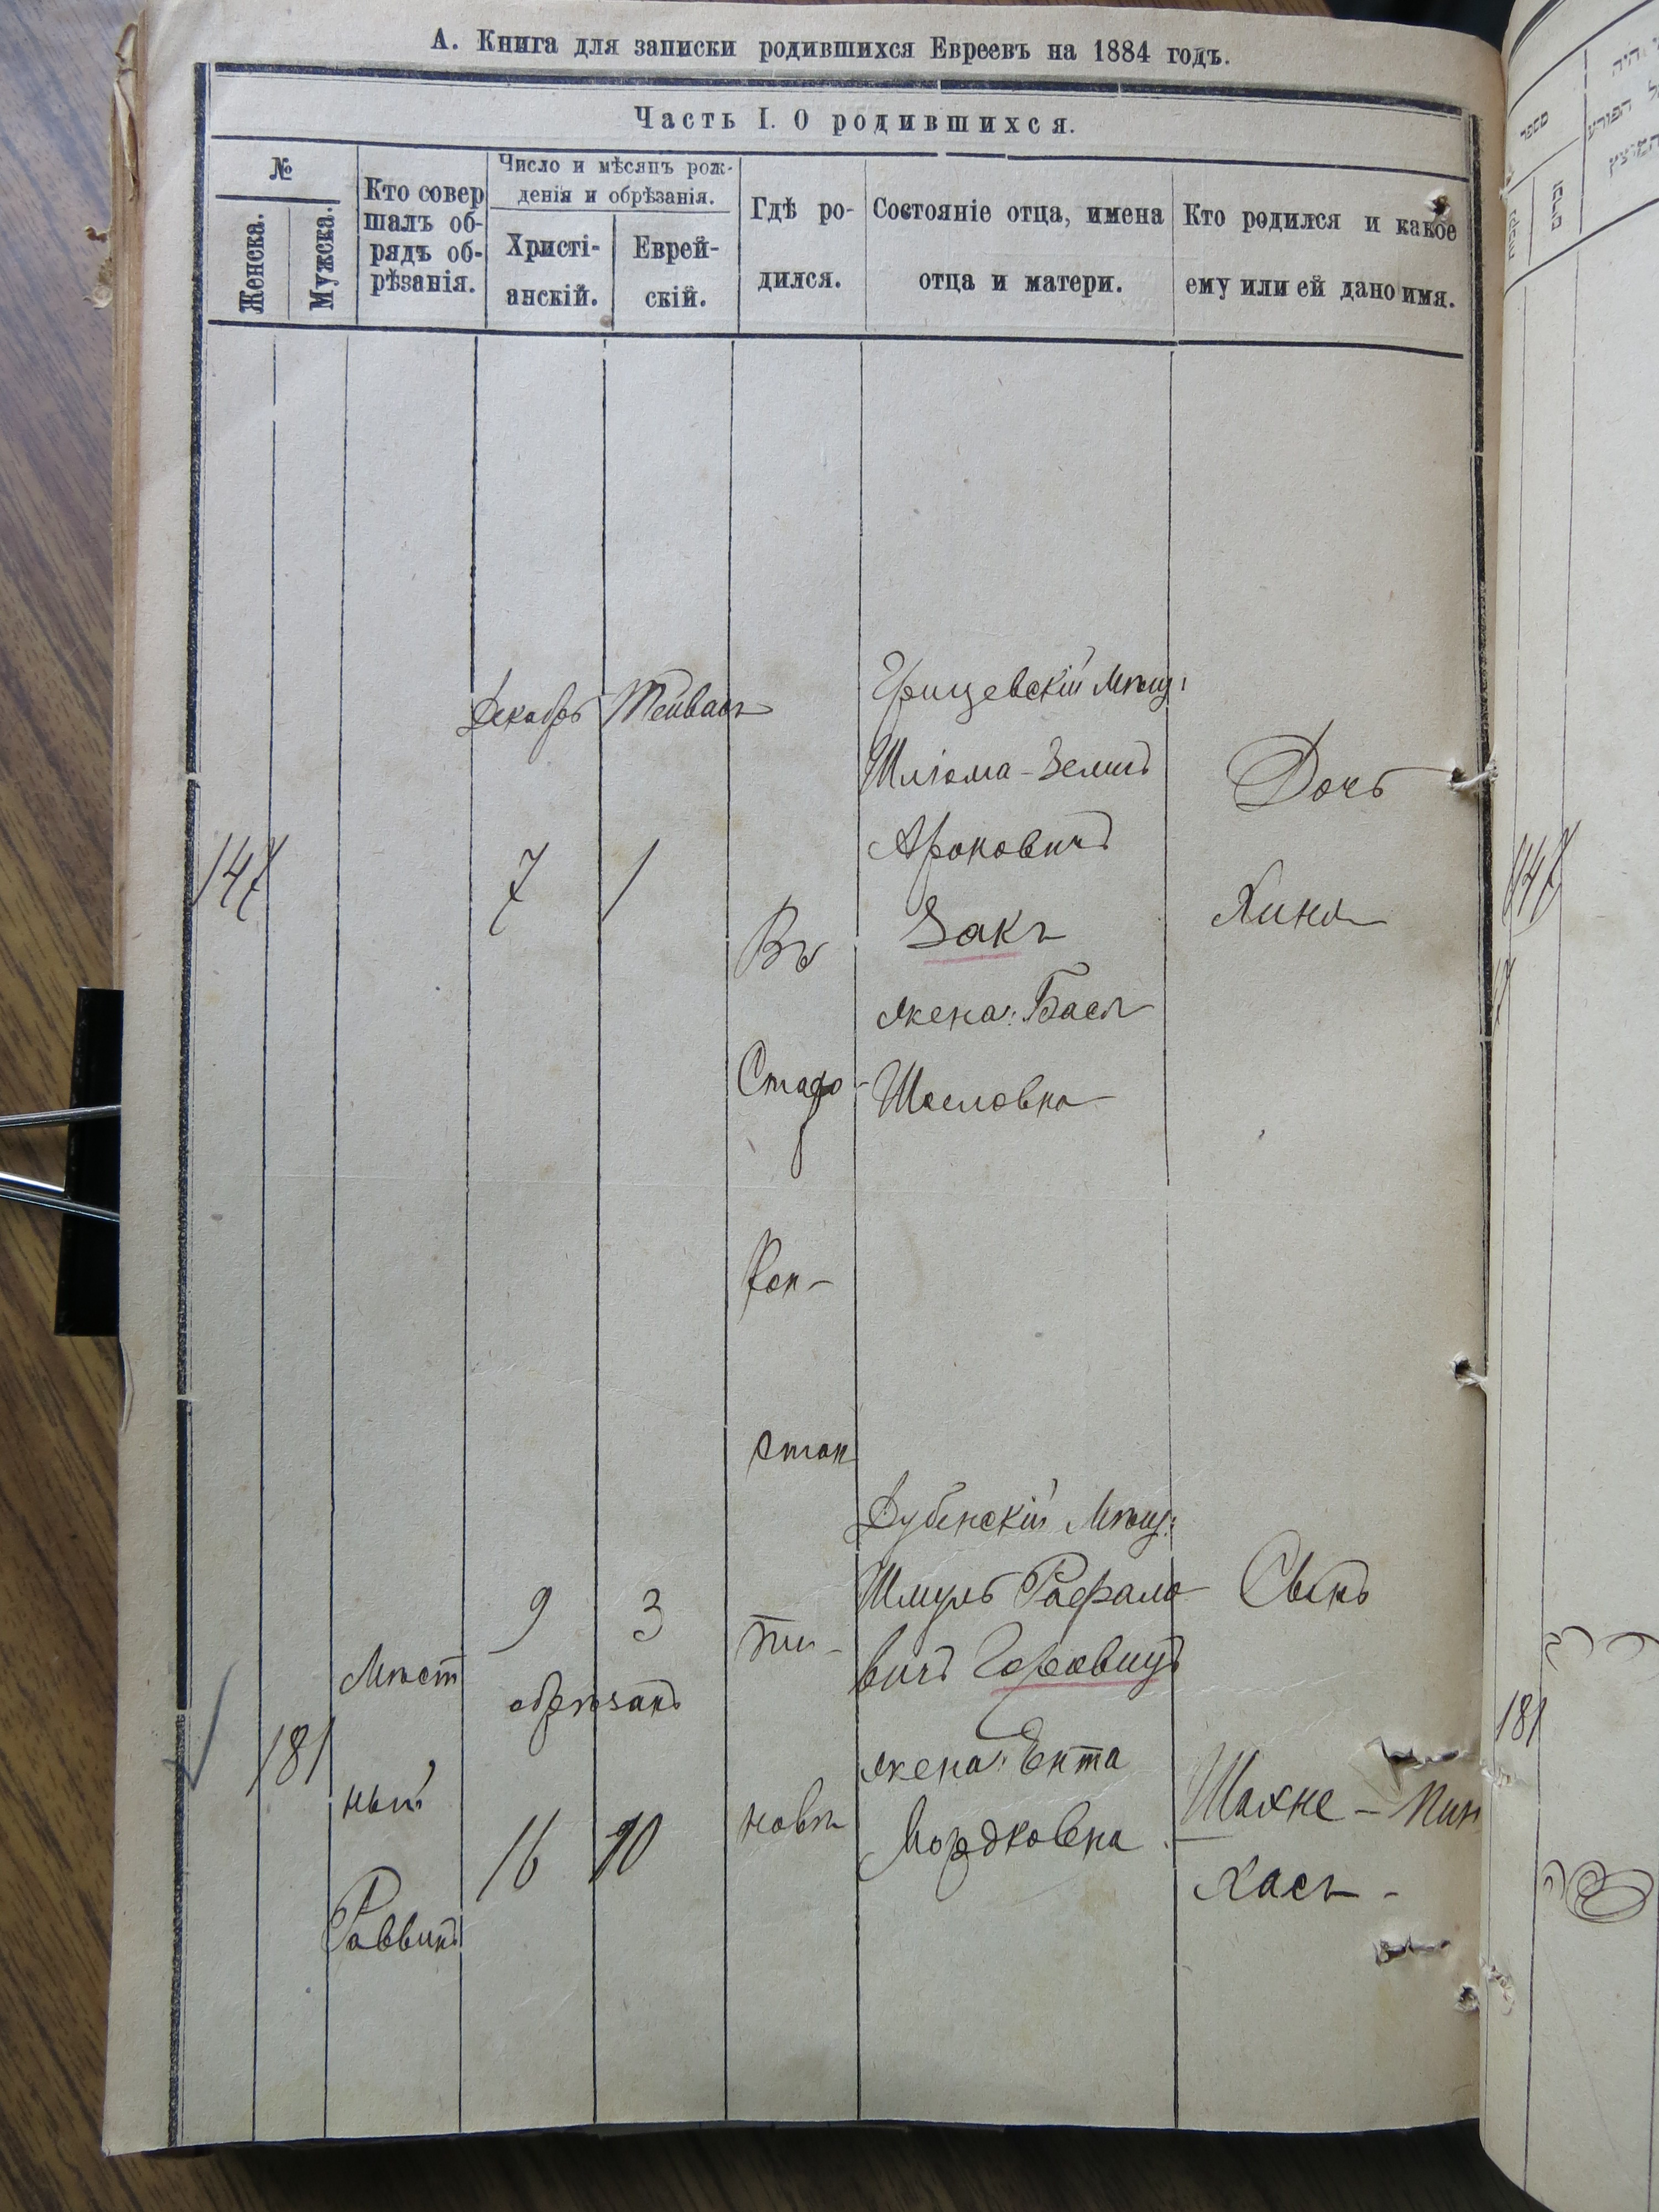 А. Книга для записки родившихся Евреевъ на 1884 годъ.
Часть I. О родившихся.
№
Женска.
Мужска.
Кто совер
шалъ об-
рядъ об-
рѣзанія.
Число и мѣсяцъ рож-
денія и обрѣзанія.
Христі-
анскій.
Еврей-
скій.
Гдѣ ро-
дился.
Состояніе отца, имена
отца и матери.
Кто родился и какое
ему или ей дано имя.
147
Декабрь
7
Тейвасъ
1
Въ
Старо-
Кон-
стан
ти-
новѣ
Грицевскій Мѣщ:
Шліома-Зелигъ
Ароновичъ
Закъ
жена: Бася
Иословна
Дочь
Хина
181
Мѣст
ный
Раввинъ
9
3
обрѣзанъ
16
10
Дубенскій Мѣщ:
Шмуль Рафало
вичъ Горовицъ
жена: Ента
Мордковна
Сынъ
Шахне-Пин
хасъ-
147
181
מספר